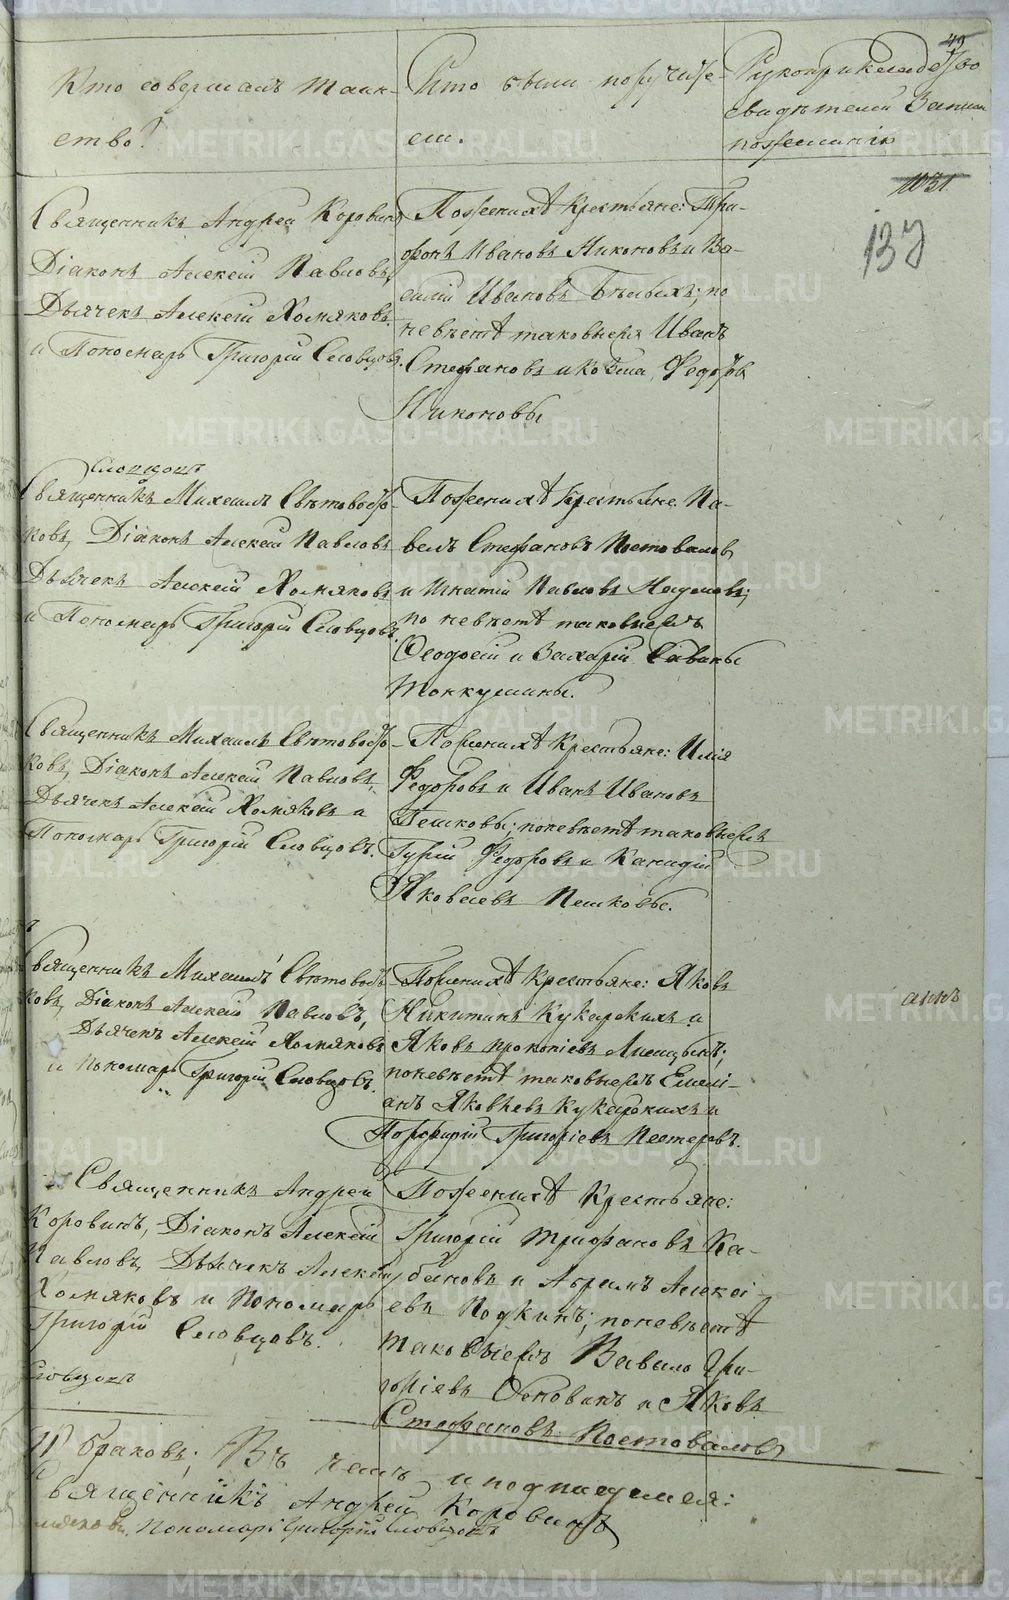 49
Кто совершалъ таин-
ство?
Кто были поручите-
ли.
Рукоприкладство
свидѣтелей Записи
по желанію
1031
137
Священникъ Андрей Коровинъ
Діаконъ Алексій Павловъ,
Дьячекъ Алексій Холмяковъ
и Пономарь Григорій Словцовъ.
По женихѣ Крестьяне: Три-
фонъ Ивановъ Никоновъ и Ва-
силій Ивановъ Бѣлыхъ; по
невѣстѣ таковыежъ Иванъ
Стефановъ и Козма Федоровъ
Никоновы
Словцовъ
Священникъ Михаилъ Свѣтовостo-
ковъ, Діаконъ Алексій Павловъ
Дьячекъ Алексій Холмяковъ
и Пономарь Григорій Словцовъ.
По женихѣ Крестьяне: Па-
велъ Стефановъ Постоваловъ
и Игнатій Павловъ
по невѣстѣ таковыежъ
Феодосій и Захарій Савины
Тонкушины.
Священникъ Михаилъ Свѣтовосто-
ковъ, Діаконъ Алексій Павловъ,
Дьячекъ Алексій Холмяковъ и
Пономарь Григорій Словцовъ.
По женихѣ Крестьяне: Илія
Федоровъ и Иванъ Ивановъ
Пешковы; по невѣстѣ таковыежъ
Гурій Федоровъ и Канидій
Яковлевъ Пешковы.
Священникъ Михаилъ Свѣтовосто-
ковъ, Діаконъ Алексій Павловъ,
Дьячекъ Алексій Холмяковъ
и Пономарь Григорій Словцовъ.
По женихѣ Крестьяне: Яковъ
Никитинъ Кукарскихъ и
Яковъ Прокопіевъ
по невѣстѣ таковыежъ Емелі-
анъ Яковлевъ Кукарскихъ и
Порфирій Григоріевъ Пестеревъ.
Священникъ Андрей
Коровинъ, Діаконъ Алексій
Павловъ, Дьячекъ Алексій
Холмяковъ и Пономарь
Григорій Словцовъ.
Словцовъ
По женихѣ Крестьяне:
Григорій Трифановъ Ка-
бановъ и Абрамъ Алексі-
евъ Подкинъ; по невѣстѣ
таковыежъ Вавило Гри-
горіевъ и Яковъ
Стефановъ Постоваловъ
браковъ; Въ чемъ и подписуемся:
Священникъ Андрей Коровинъ
Пономарь Григорій Словцовъ
METRIKI.GASO-URAL.RU